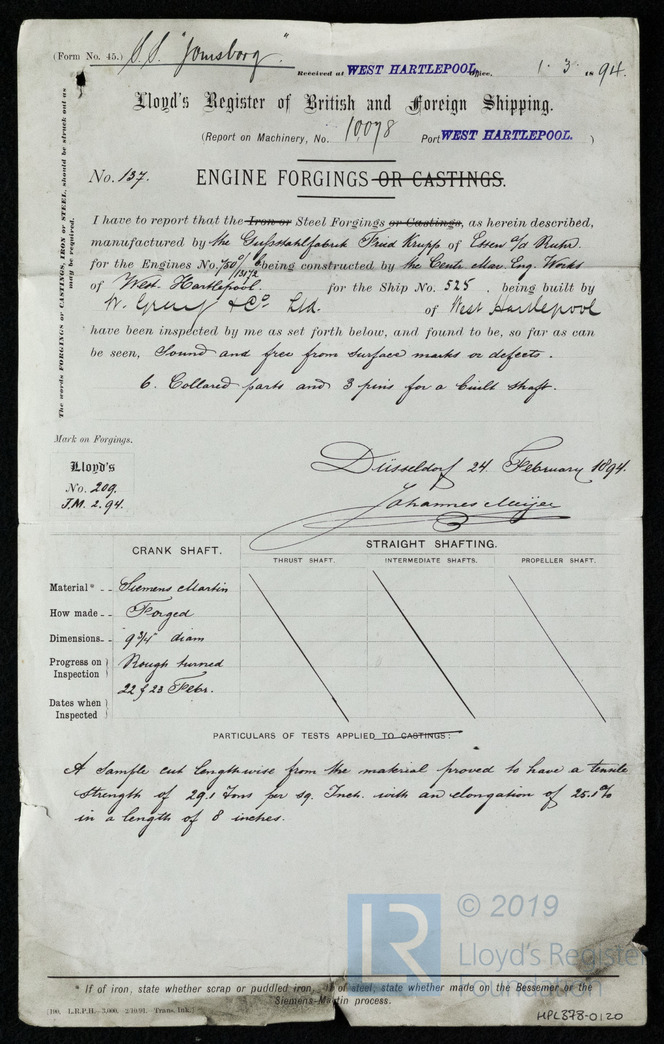 (Form No. 45.) S.S. "Jomsborg".
Received at WEST HARTLEPOOL Office, 1. 3 1894.
Lloyd's Register of British and Foreign Shipping.
(Report on Machinery, No. 10078 Port WEST HARTLEPOOL. )
No. 137. ENGINE FORGINGS OR CASTINGS.
The words FORGINGS or CASTINGS, IRON or STEEL, should be struck out as
may be required.
I have to report that the Iron or Steel Forgings or Castings, as herein described,
manufactured by the Gußstahlfabrik Fried Krupp of Essen a/d Ruhr.
for the Engines No. being constructed by the Centr Mar. Eng. Works
of West. Hartlepool. for the Ship No. 525 , being built by
W. Gray & Co. Ltd. of West Hartlepool
have been inspected by me as set forth below, and found to be, so far as can
be seen, Sound and free from surface marks or defects.
6. Collared parts and 3 pins for a built shaft.
Mark on Forgings.
Lloyd's
No. 209.
J.M. 2.94.
Düsseldorf 24. February 1894.
Johannes Meijer
CRANK SHAFT. STRAIGHT SHAFTING.
THRUST SHAFT. INTERMEDIATE SHAFTS. PROPELLER SHAFT.
Material* - - Siemens Martin
How made - - Forged
Dimensions - - 9 3/4" diam
Progress on Inspection Rough turned
22 & 23 Febr.
Dates when Inspected
PARTICULARS OF TESTS APPLIED TO CASTINGS:
A Sample cut lengthwise from the material proved to have a tensile
strength of 29.1 Tons per sq. Inch. with an elongation of 25.1%
in a length of 8 inches.
LR © 2019
Lloyd's Register
Foundation
* If of iron, state whether scrap or puddled iron, if of steel, state whether made on the Bessemer or the
Siemens-Martin process.
(190. L.R.P.H.—3,000. 2/10/91.—Trans. Ink.)
HPL378-0120